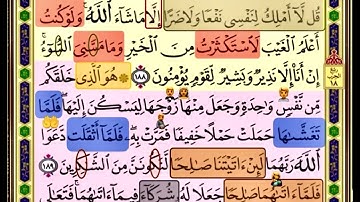 قُل لَّآ أَمْلِكُ لِنَفْسِى نَفْعًا وَلَا ضَرًّا إِلَّا مَا شَآءَ ٱللَّهُ وَلَوْ كُنتُ
أَعْلَمُ ٱلْغَيْبَ لَٱسْتَكْثَرْتُ مِنَ ٱلْخَيْرِ وَمَا مَسَّنِىَ ٱلسُّوٓءُ
إِنْ أَنَا۠ إِلَّا نَذِيرٌ وَبَشِيرٌ لِّقَوْمٍ يُؤْمِنُونَ ١٨٨ هُوَ ٱلَّذِى خَلَقَكُم
مِّن نَّفْسٍ وَٰحِدَةٍ وَجَعَلَ مِنْهَا زَوْجَهَا لِيَسْكُنَ إِلَيْهَا فَلَمَّا
تَغَشَّىٰهَا حَمَلَتْ حَمْلًا خَفِيفًا فَمَرَّتْ بِهِۦ فَلَمَّآ أَثْقَلَت دَّعَوَا
ٱللَّهَ رَبَّهُمَا لَئِنْ ءَاتَيْتَنَا صَٰلِحًا لَّنَكُونَنَّ مِنَ ٱلشَّٰكِرِينَ ١٨٩
فَلَمَّآ ءَاتَىٰهُمَا صَٰلِحًا جَعَلَا لَهُۥ شُرَكَآءَ فِيمَآ ءَاتَىٰهُمَا فَتَعَٰلَى